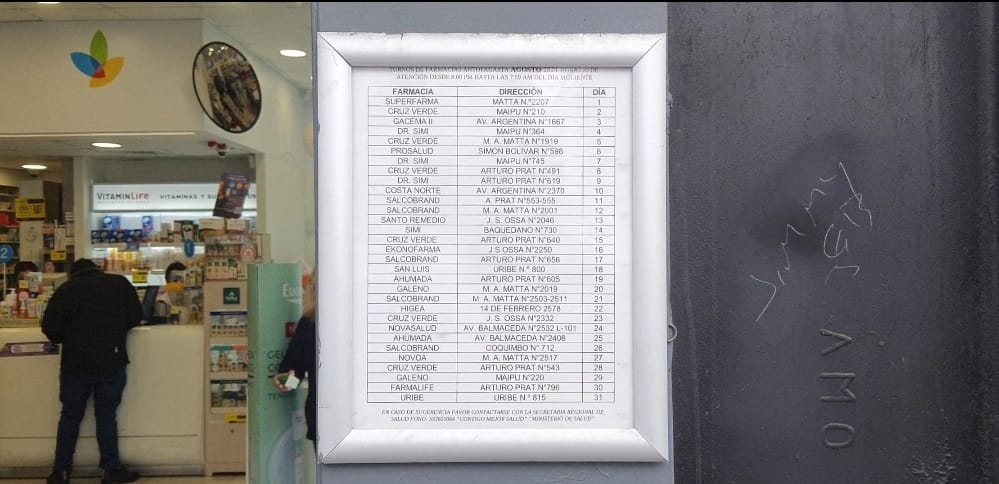 VITAMINLIFE VITAMINAS Y SU
2
TURNOS DE FARMACIAS ANTOFAGASTA AGOSTO 2024 HORARIO DE
ATENCIÓN DESDE 8:00 PM HASTA LAS 7:59 AM DEL DÍA SIGUIENTE
FARMACIA DIRECCIÓN DÍA
SUPERFARMA MATTA N.º2207 1
CRUZ VERDE MAIPU N°210 2
GACEMA II AV. ARGENTINA N°1667 3
DR. SIMI MAIPU N°364 4
CRUZ VERDE M. A. MATTA N°1919 5
PROSALUD SIMON BOLIVAR N°598 6
DR. SIMI MAIPU N°745 7
CRUZ VERDE ARTURO PRAT N°491 8
DR. SIMI ARTURO PRAT N°619 9
COSTA NORTE AV. ARGENTINA N°2370 10
SALCOBRAND A. PRAT N°553-555 11
SALCOBRAND M. A. MATTA N°2001 12
SANTO REMEDIO J. S. OSSA N°2046 13
SIMI BAQUEDANO N°730 14
CRUZ VERDE ARTURO PRAT N°640 15
EKONOFARMA J.S OSSA N°2250 16
SALCOBRAND ARTURO PRAT N°656 17
SAN LUIS URIBE N.º 800 18
AHUMADA ARTURO PRAT N°605 19
GALENO M. A. MATTA N°2019 20
SALCOBRAND M. A. MATTA N°2503-2511 21
HIGEA 14 DE FEBRERO 2578 22
CRUZ VERDE J. S. OSSA N°2332 23
NOVASALUD AV. BALMACEDA N°2532 L-101 24
AHUMADA AV. BALMACEDA N°2408 25
SALCOBRAND COQUIMBO N° 712 26
NOVOA M. A. MATTA N°2517 27
CRUZ VERDE ARTURO PRAT N°543 28
GALENO MAIPU N°220 29
FARMALIFE ARTURO PRAT N°796 30
URIBE URIBE N.º 815 31
EN CASO DE SUGERENCIA FAVOR CONTACTARSE CON LA SECRETARIA REGIONAL DE
SALUD FONO: 552655064 "CONTIGO MEJOR SALUD" "MINISTERIO DE SALUD"
AMO